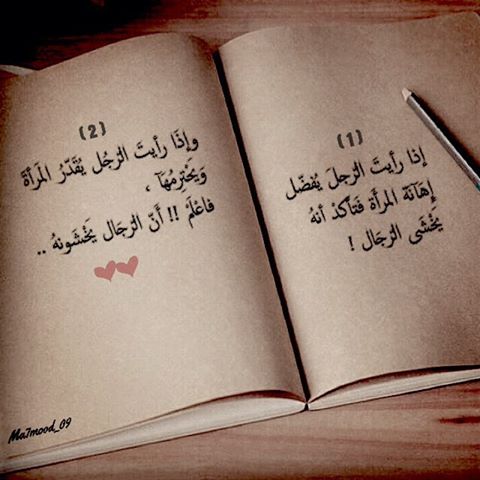 (1)
إذا رأيتَ الرّجلَ يُفضّل
إهَانَة المرأة فَتَأكدْ أنهُ
يَخْشَى الرّجَال !
(2)
وإذَا رأيتَ الرّجُل يُقَدّرُ المَرأةَ
وَيَحْتَرِمُهَا ،
فاعْلَمْ !! أَنّ الرّجَال يَخْشَونهُ ..
Ma7mood_09